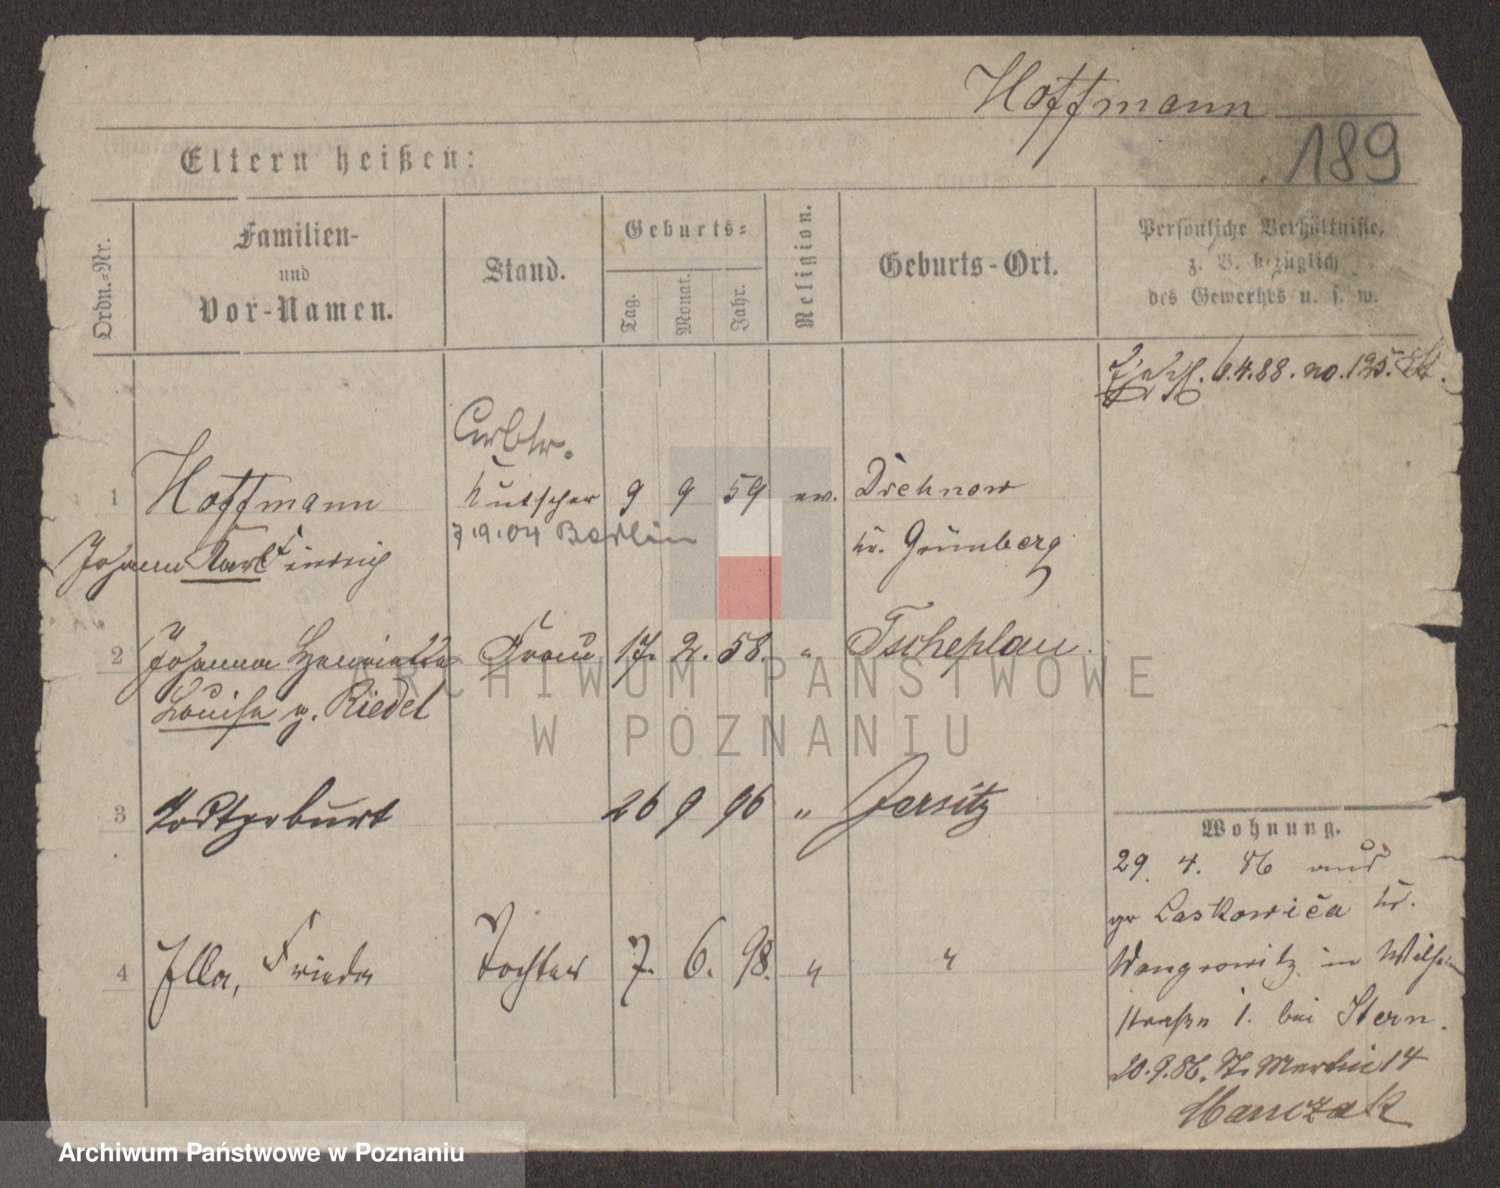 Hoffmann
189
Eltern heißen:
Ordn.-Nr.
Familien-
und
Vor-Namen.
Stand.
Geburts-
Tag.
Monat.
Jahr.
Religion.
Geburts-Ort.
Persönliche Verhältnisse,
z. B. bezüglich
des Gewerbes u. s. w.
6.4.88. no. 195.
Arbtr.
1 Hoffmann Kutscher 9 9 59 ev. Drehnow
7.9.04 Berlin
Johann Karl Kr. Grünberg
2 Johanna Henriette Frau 17. 2. 58. " Tscheplau.
Louise g. Riedel
3 Todtgeburt 26 9 96 " Jersitz
Wohnung.
29. 4. 86 aus
gr Laskowica Kr.
4 Ella, Frieda Tochter 7. 6. 98. " "
Wongrowitz in Wilhelm
straße 1. bei Stern.
20.9.86. St. Martin 14
ARCHIWUM PAŃSTWOWE
W POZNANIU
Archiwum Państwowe w Poznaniu